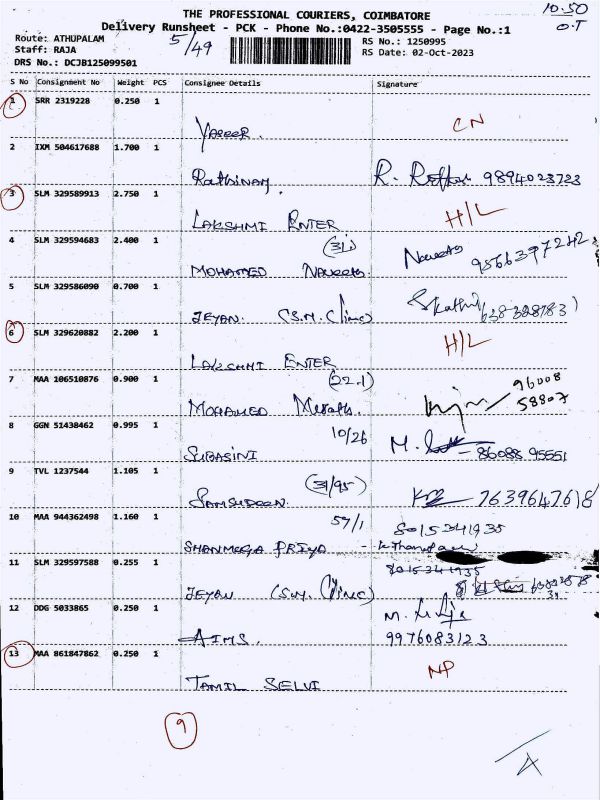 THE PROFESSIONAL COURIERS, COIMBATORE
10.50
Delivery Runsheet - PCK - Phone No.:0422-3505555 - Page No.:1
O.T
Route: ATHUPALAM
5/49
RS No.: 1250995
Staff: RAJA
RS Date: 02-Oct-2023
DRS No.: DCJB125099501
S No Consignment No Weight PCS Consignee Details Signature
1 SRR 2319228 0.250 1
CN
2 IXM 504617688 1.700 1
Rathinam. R. 9894023723
3 SLM 329589913 2.750 1
H/L
LAKSHMI ENTER
4 SLM 329594683 2.400 1
(31)
MOHAMED
5 SLM 329586090 0.700 1
JEYAN. (S.M. Clinic)
6 SLM 329620882 2.200 1
H/L
LAKSHMI ENTER
7 MAA 106510876 0.900 1
(22.1) 96008
58807
MOHAMED
8 GGN 51438462 0.995 1
10/26
SUBASINI M. 86088 95551
9 TVL 1237544 1.105 1
(31/95)
SAMSUDEEN. 7639647618
10 MAA 944362498 1.160 1
57/1 8015341935
SHANMUGA PRIYA
11 SLM 329597588 0.255 1
8015341935
JEYAN (S.M. Clinic)
12 DDG 5033865 0.250 1
AIMS. 9976083123
13 MAA 861847862 0.250 1
NP
TAMIL SELVI
9